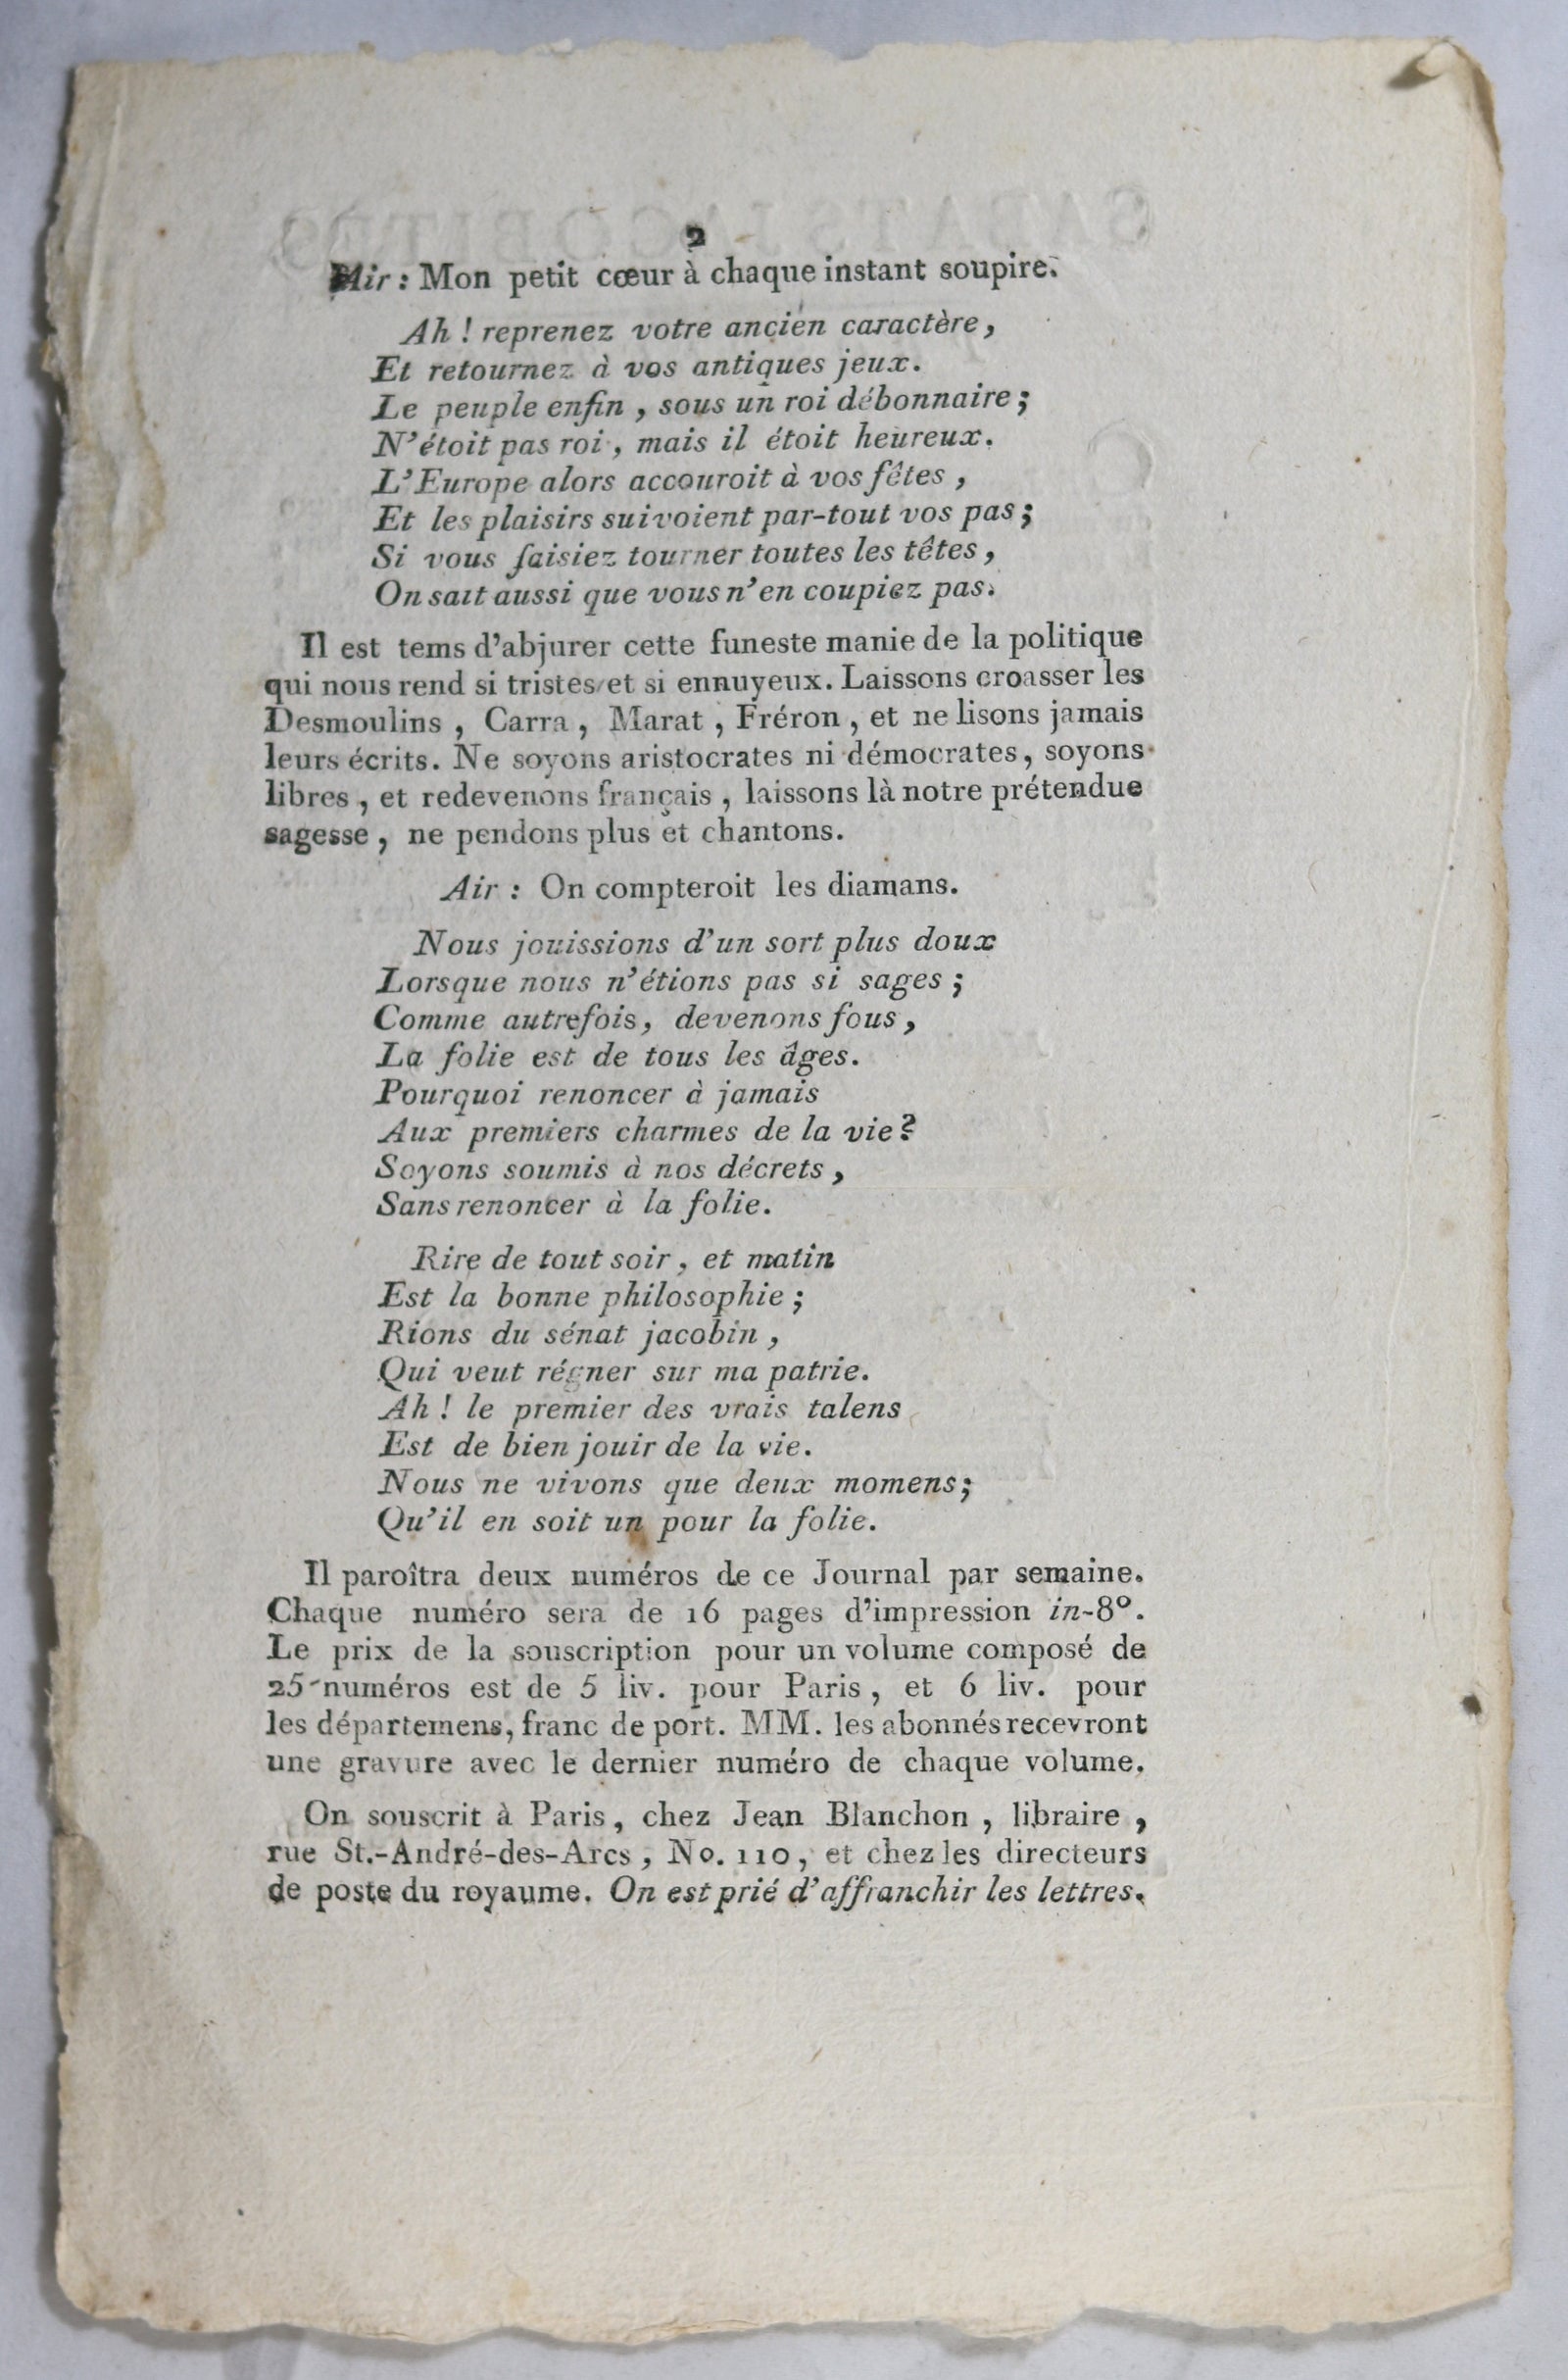 2
Air : Mon petit cœur à chaque instant soupire.
Ah ! reprenez votre ancien caractère,
Et retournez à vos antiques jeux.
Le peuple enfin , sous un roi débonnaire ;
N'étoit pas roi , mais il étoit heureux.
L'Europe alors accouroit à vos fêtes ,
Et les plaisirs suivoient par-tout vos pas ;
Si vous faisiez tourner toutes les têtes ,
On sait aussi que vous n'en coupiez pas.
Il est tems d'abjurer cette funeste manie de la politique
qui nous rend si tristes et si ennuyeux. Laissons croasser les
Desmoulins , Carra , Marat , Fréron , et ne lisons jamais
leurs écrits. Ne soyons aristocrates ni démocrates, soyons
libres , et redevenons français , laissons là notre prétendue
sagesse , ne pendons plus et chantons.
Air : On compteroit les diamans.
Nous jouissions d'un sort plus doux
Lorsque nous n'étions pas si sages ;
Comme autrefois, devenons fous ,
La folie est de tous les âges.
Pourquoi renoncer à jamais
Aux premiers charmes de la vie ?
Soyons soumis à nos décrets ,
Sans renoncer à la folie.
Rire de tout soir , et matin
Est la bonne philosophie ;
Rions du sénat jacobin ,
Qui veut régner sur ma patrie.
Ah ! le premier des vrais talens
Est de bien jouir de la vie.
Nous ne vivons que deux momens ;
Qu'il en soit un pour la folie.
Il paroîtra deux numéros de ce Journal par semaine.
Chaque numéro sera de 16 pages d'impression in-8°.
Le prix de la souscription pour un volume composé de
25 numéros est de 5 liv. pour Paris , et 6 liv. pour
les départemens, franc de port. MM. les abonnés recevront
une gravure avec le dernier numéro de chaque volume.
On souscrit à Paris , chez Jean Blanchon , libraire ,
rue St.-André-des-Arcs , No. 110, et chez les directeurs
de poste du royaume. On est prié d'affranchir les lettres.